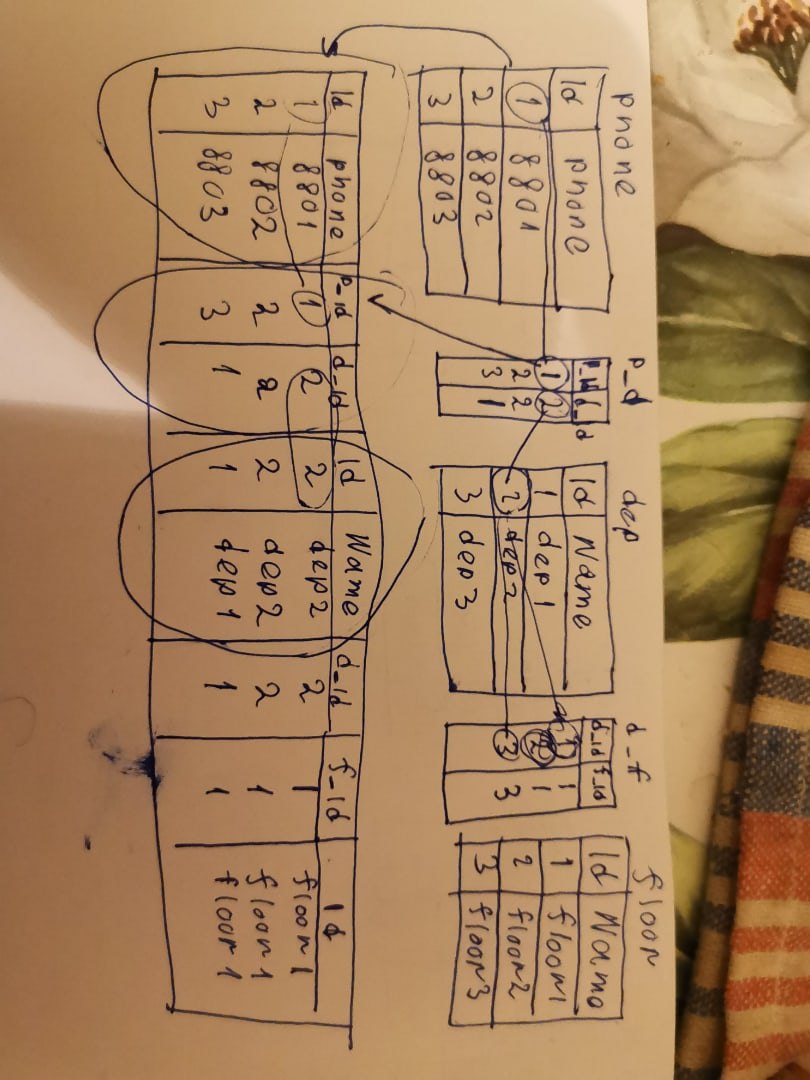 phone p_d dep d_f floor
Id phone p_id d_id Id Name d_id f_id Id Name
1 8801 1 2 1 dep1 1 1 1 floor1
2 8802 2 2 2 dep2 2 1 2 floor2
3 8803 3 1 3 dep3 3 3 3 floor3
Id phone p_id d_id Id Name d_id f_id Id
1 8801 1 2 2 dep2 2 1 floor1
2 8802 2 2 2 dep2 2 1 floor1
3 8803 3 1 1 dep1 1 1 floor1